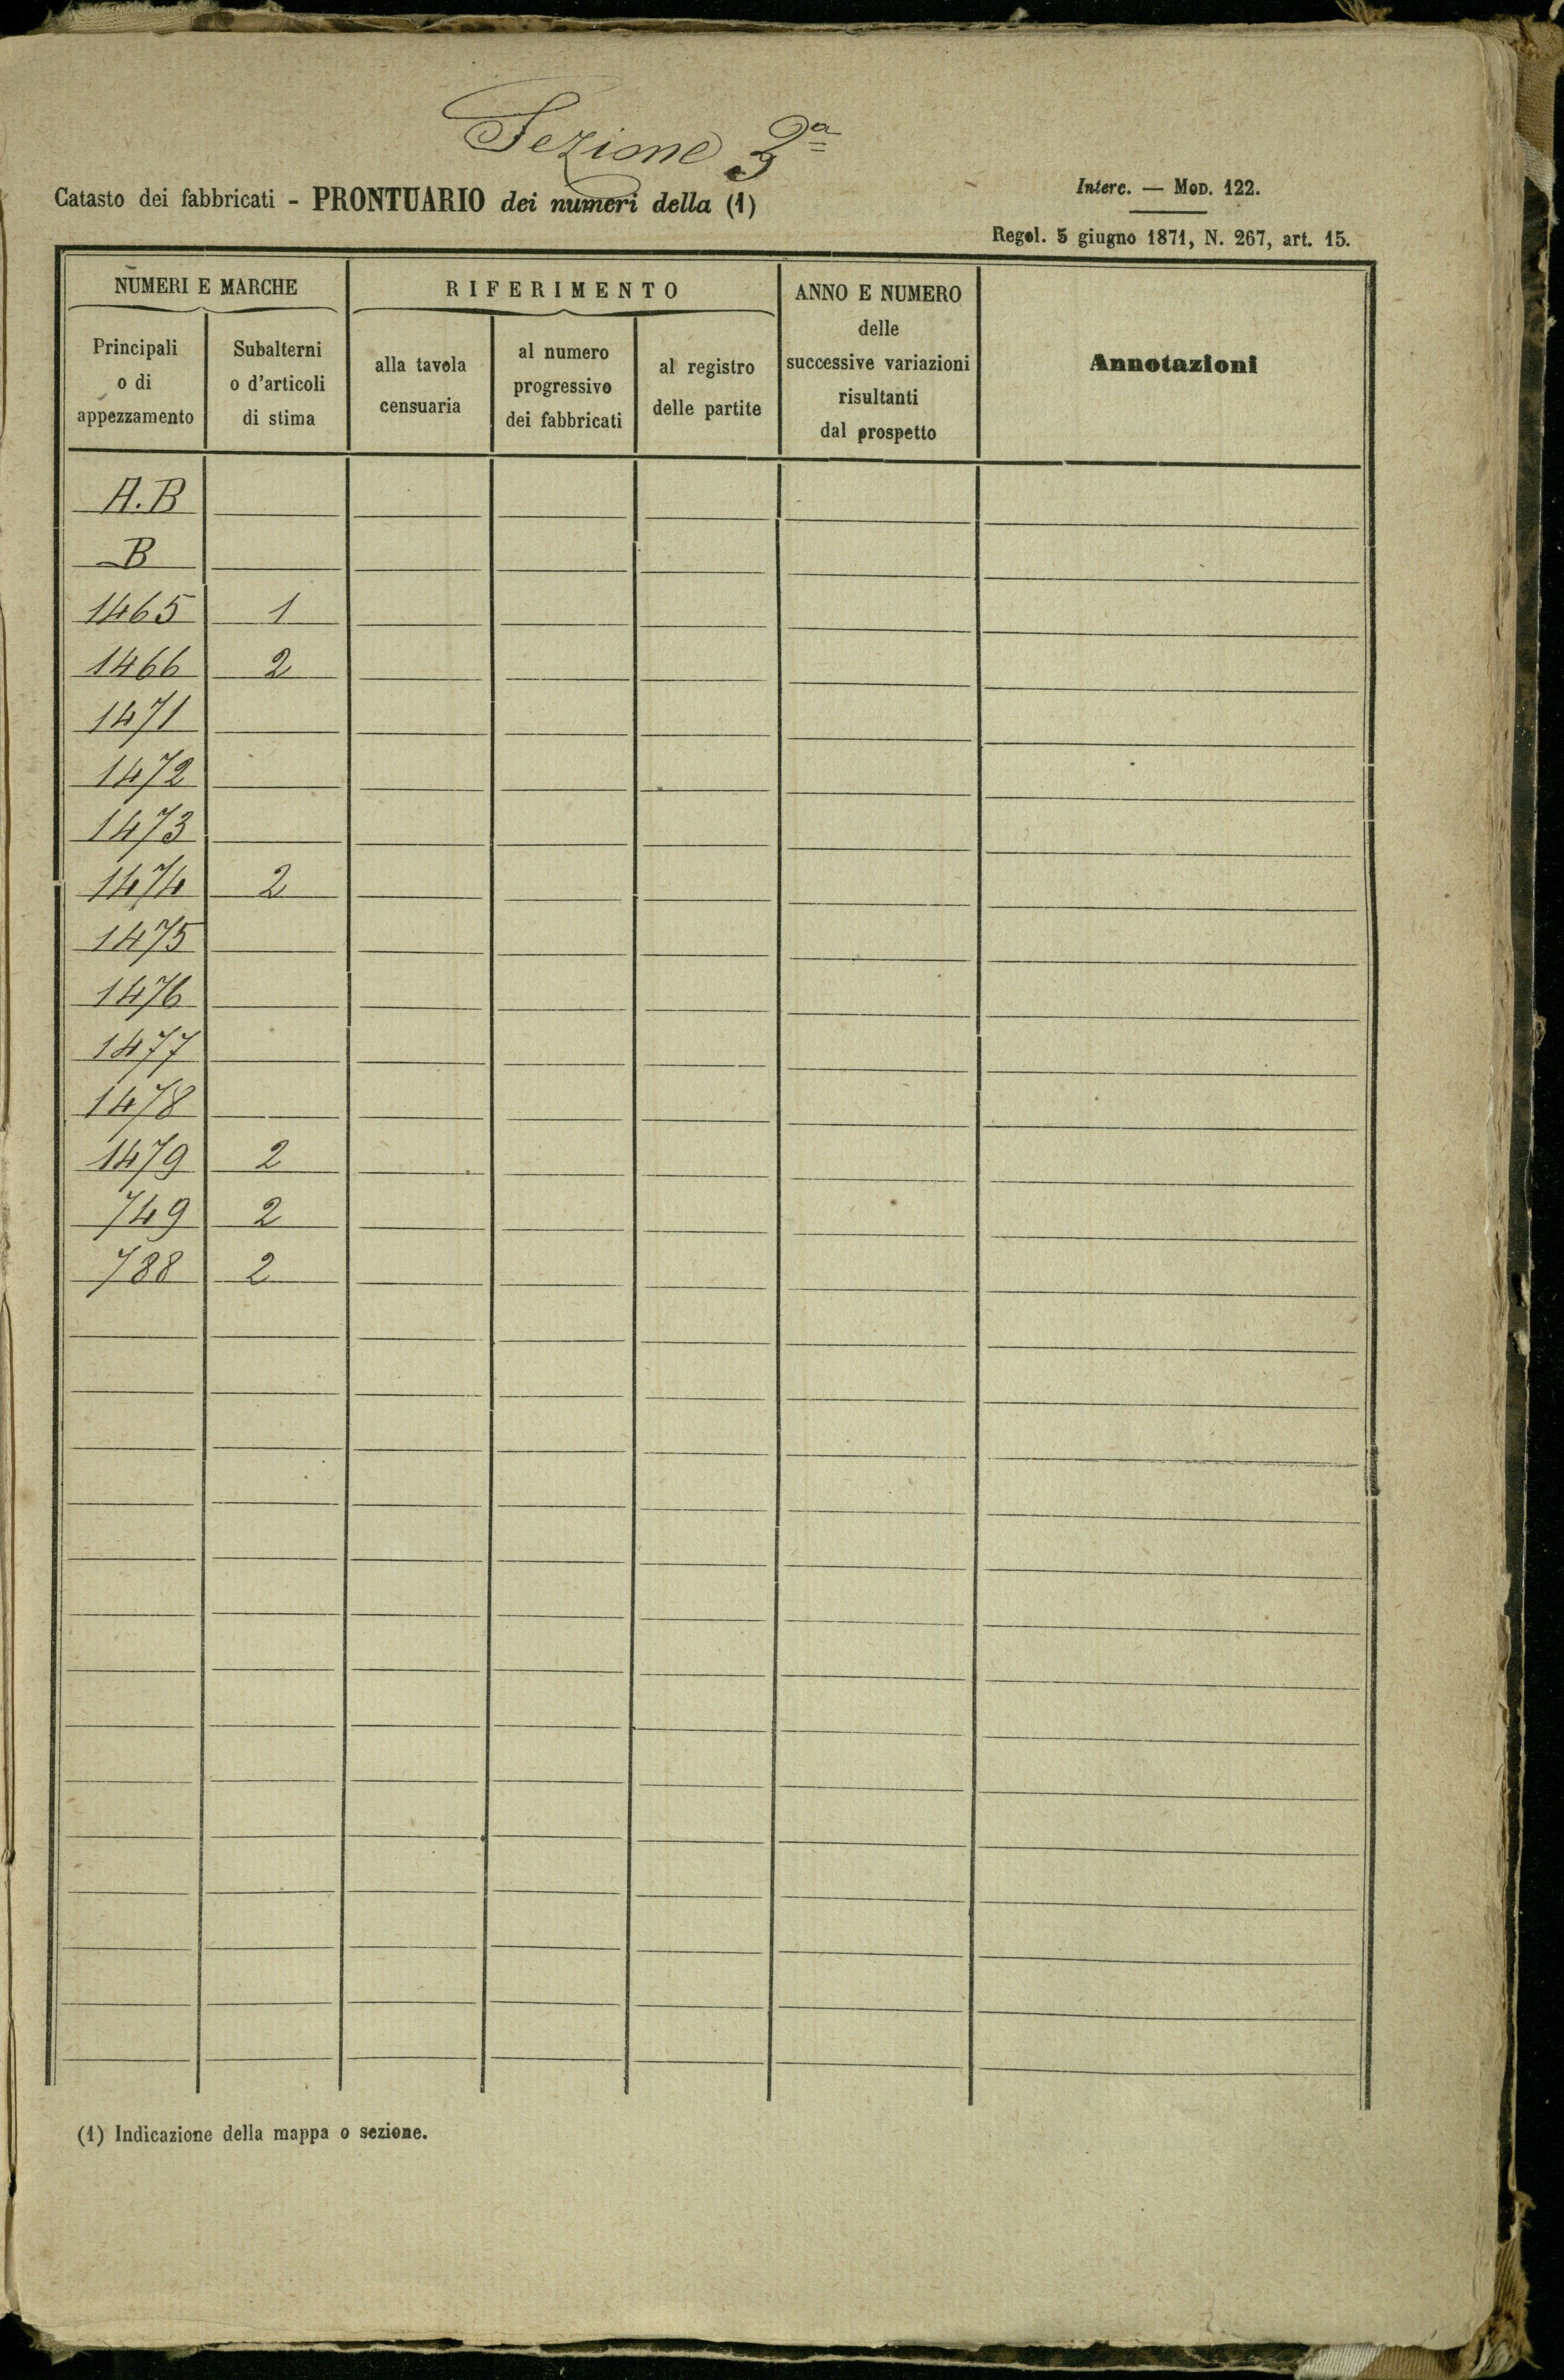 Sezione 3ª
Catasto dei fabbricati - PRONTUARIO dei numeri della (1)
Interc. — Mod. 122.
Regol. 5 giugno 1871, N. 267, art. 15.
NUMERI E MARCHE
Principali o di appezzamento
Subalterni o d'articoli di stima
RIFERIMENTO
alla tavola censuaria
al numero progressivo dei fabbricati
al registro delle partite
ANNO E NUMERO delle successive variazioni risultanti dal prospetto
Annotazioni
A.B
B
1465 1
1466 2
1471
1472
1473
1474 2
1475
1476
1477
1478
1479 2
749 2
788 2
(1) Indicazione della mappa o sezione.